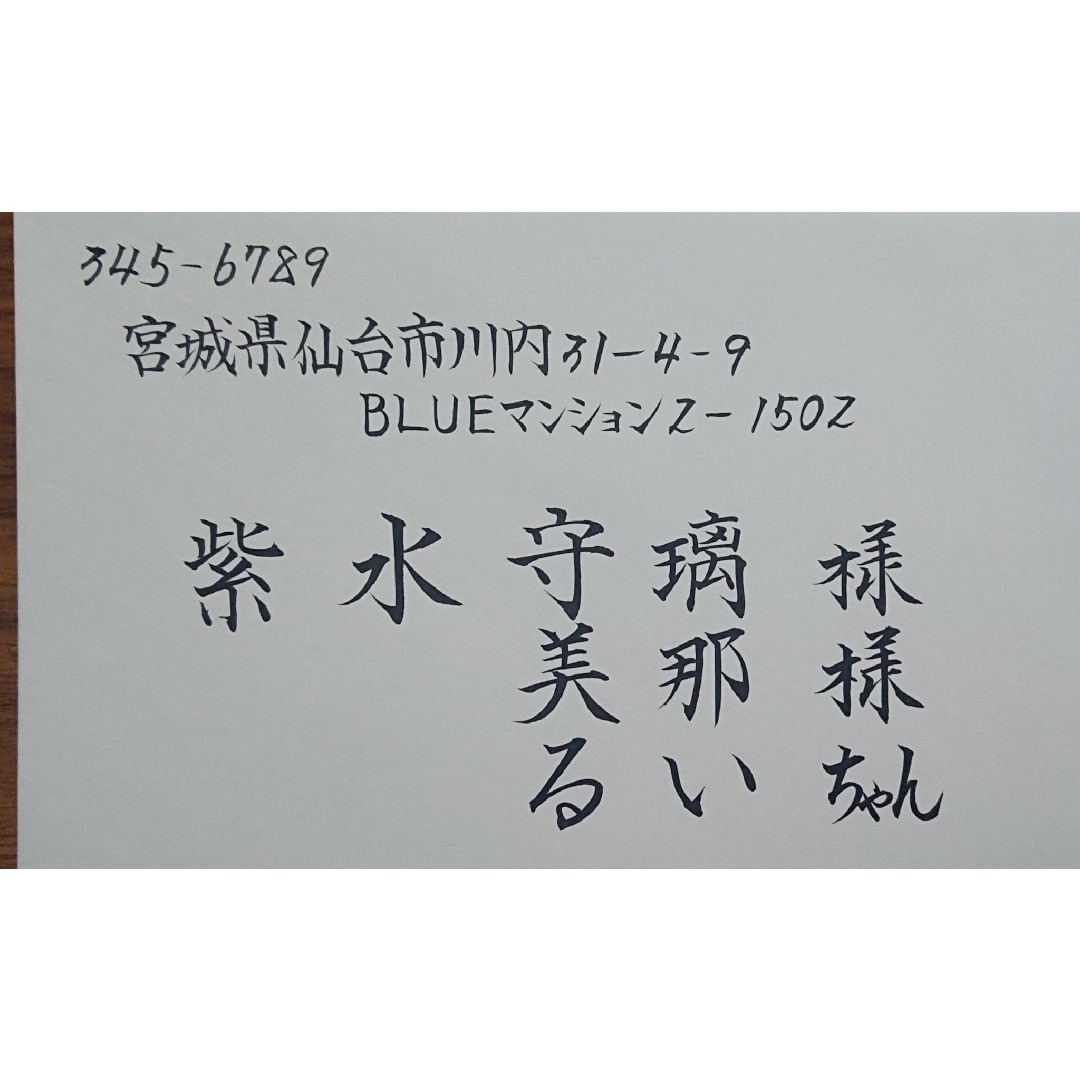 345-6789
宮城県仙台市川内31-4-9
BLUEマンション2-1502
紫水守璃様
美那様
るいちゃん